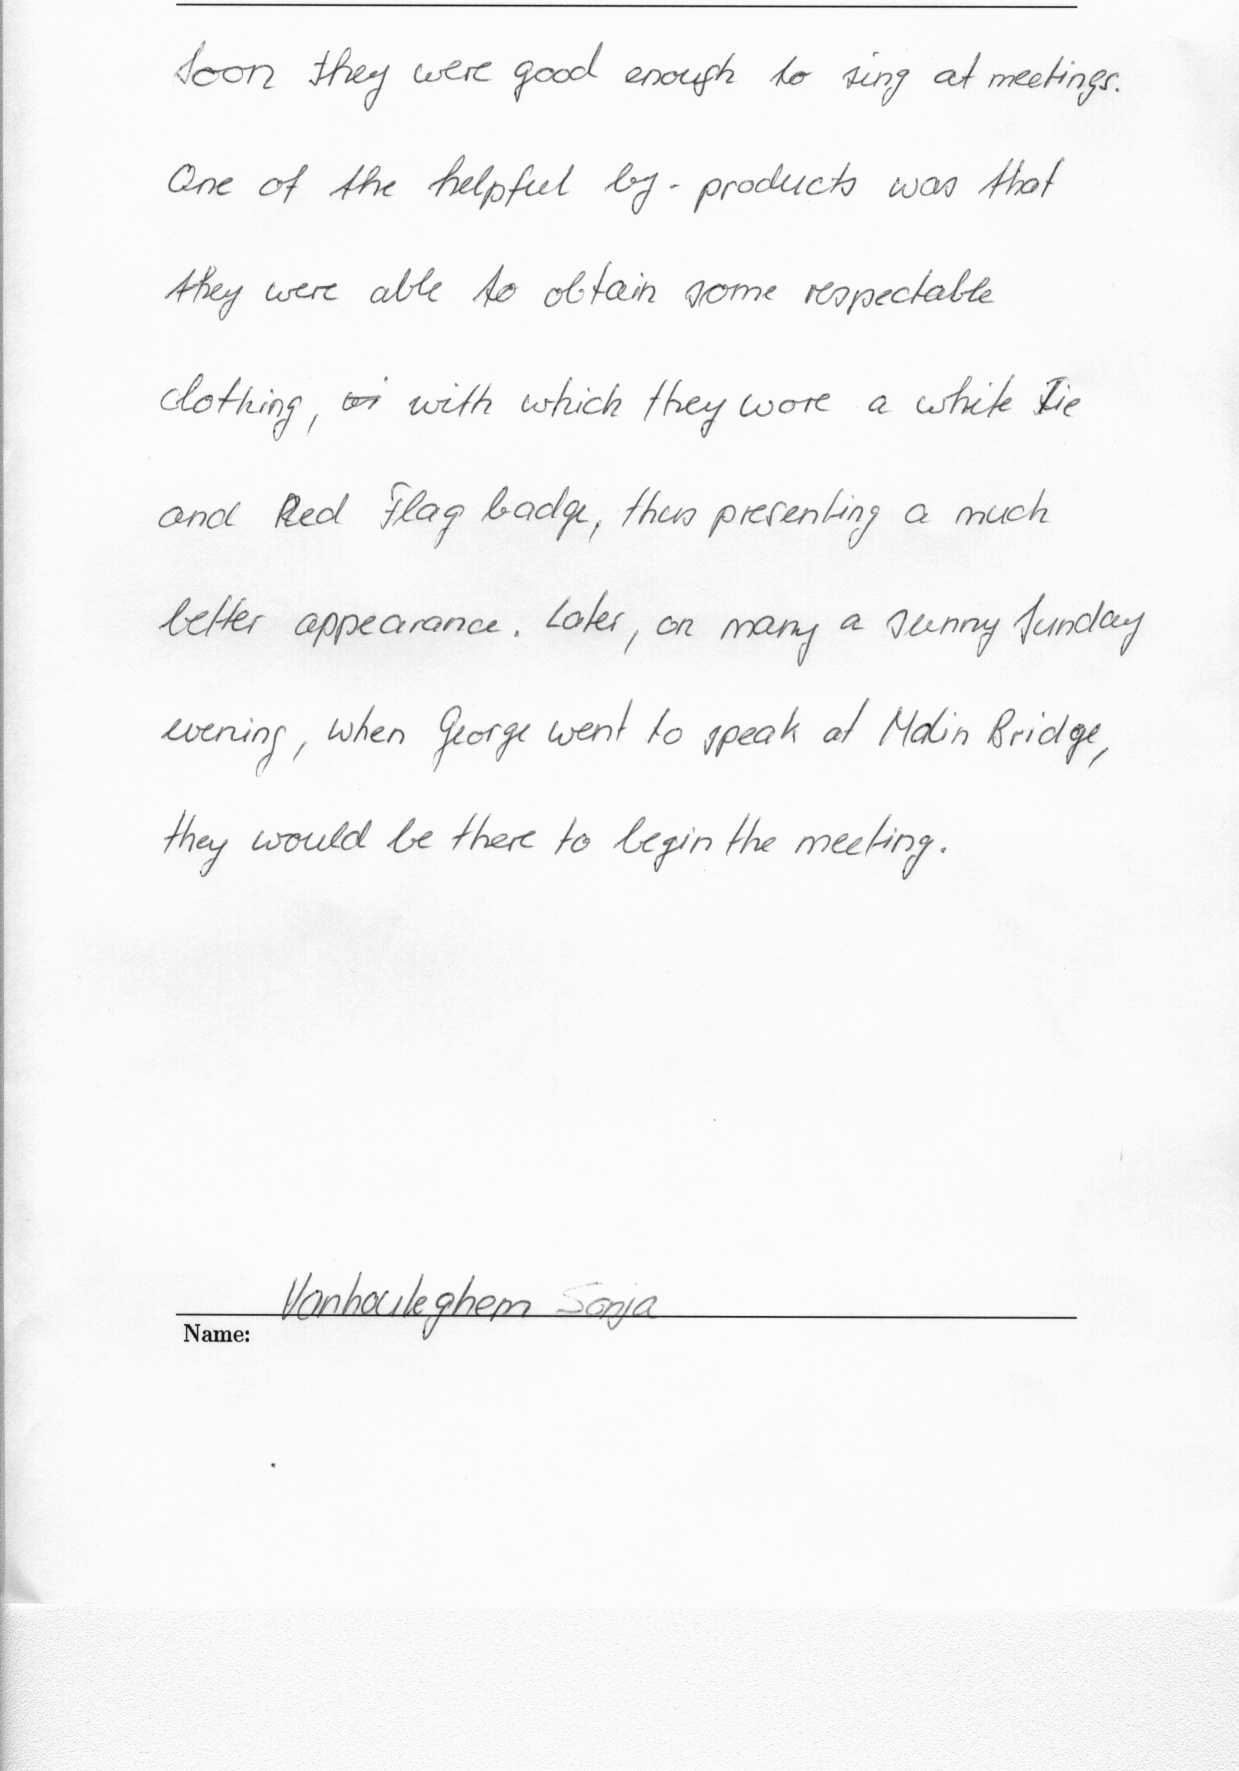 Soon they were good enough to sing at meetings.
One of the helpful by-products was that
they were able to obtain some respectable
clothing, with which they wore a white Tie
and Red Flag badge, thus presenting a much
better appearance. Later, on many a sunny Sunday
evening, when George went to speak at Malin Bridge,
they would be there to begin the meeting.
Vanhouleghem Sonja
Name: